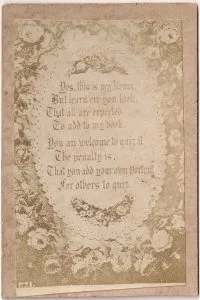 Yes, this is my Album,
But learn ere you look,
That all are expected
To add to my book.
You are welcome to quiz it
The penalty is,
That you add your own Portrait
For others to quiz.